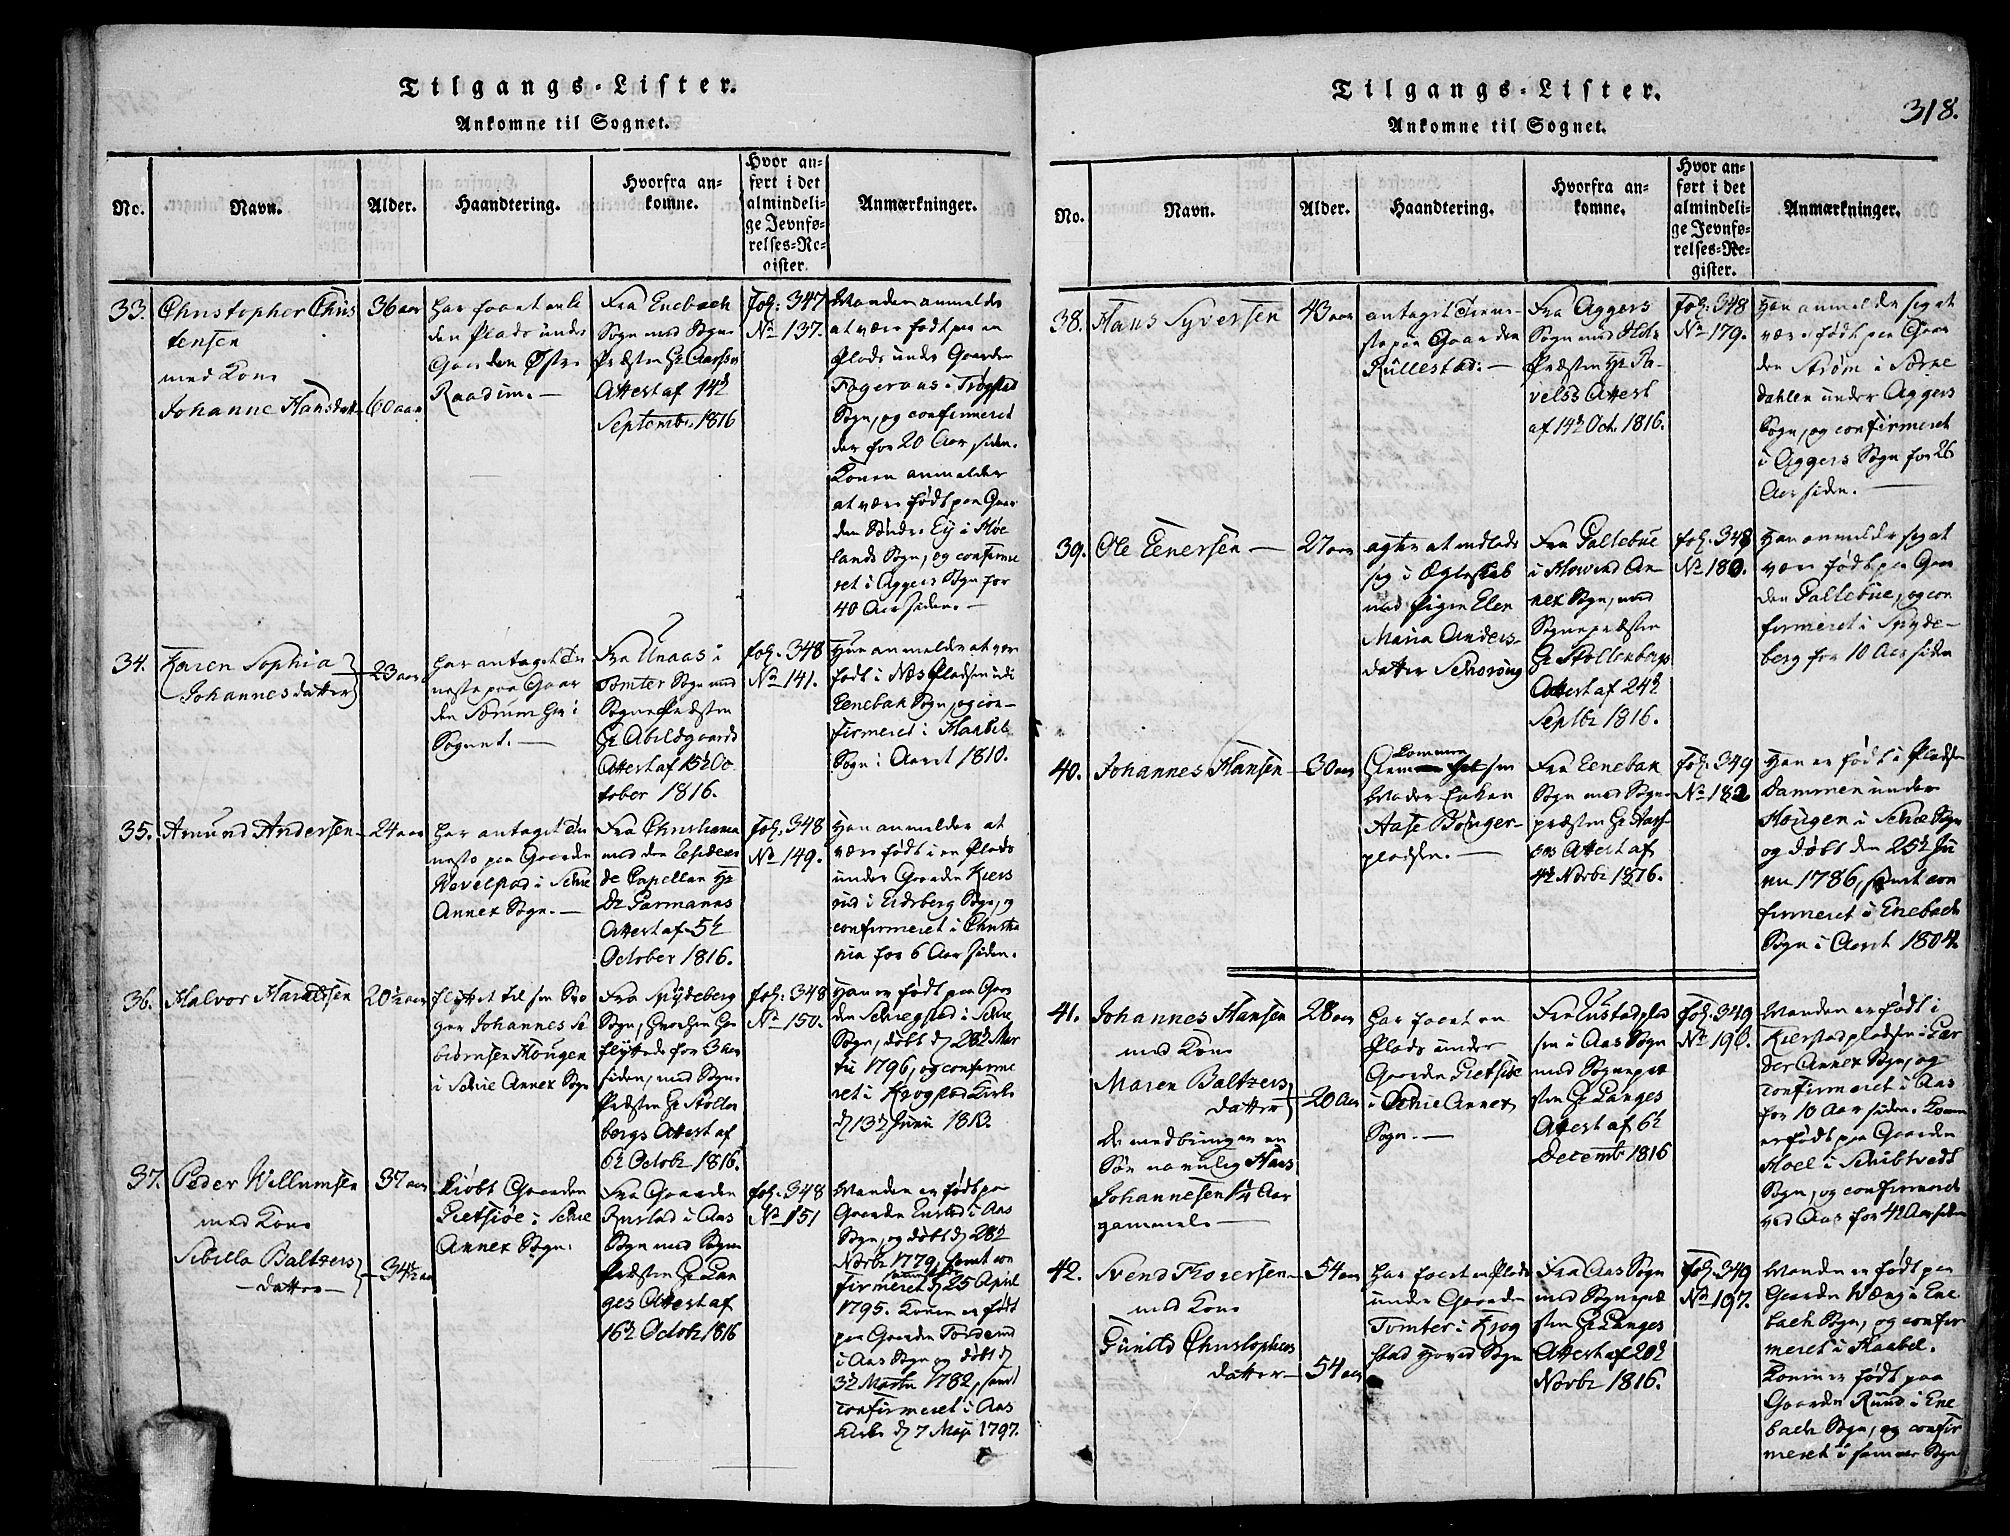 Tilgangs-Lister.
Ankomne til Sognet.
No.
Navn.
Alder.
Haandtering.
Hvorfra an-
komne.
Hvor an-
ført i det
almindeli-
ge Jevnfø-
relses-Re-
gister.
Anmærkninger.
33.
Christopher Chris
tensen
med Kone
Johanne Hansdatt
36 aar
60 aar
har faaet en li
den Plads under
Gaarden Østre
Raadim. —
Fra Enebach
Sogn med Sogne
Præsten Hr
Attest af 14de
Septembr 1816
Fol: 347
No 137.
Manden anmelder
at være født paa en
Plads under Gaarden
Fageraas i Trøgstad
Sogn, og confirmeret
der for 20 Aar siden.
Konen anmelder
at være født paa Gaar
den Søndre Eij i Høe
lands Sogn, og confirme
ret i Aggers Sogn for
40 Aar siden. —
34.
Karen Sophia
Johannesdatter
23 aar
har antaget Tie
neste paa Gaar
den Sørum her i
Sognet. —
Fra Unaas i
Tomter Sogn med
Sogne Præsten
Hr Abildgaards
Attest af 15de Oc
tober 1816.
fol. 348
No 141.
Hun anmelder at være
født i Næs Pladsen udi
Eenebak Sogn, og con-
firmeret i Haabøl
Sogn i Aaret 1810.
35.
Amund Andersen
24 aar
har antaget Tie
neste paa Gaarden
Vevelstad i Schie
Annex Sogn. —
Fra Christiania
med den Residere
de Capellan Hr
Dr Garmanns
Attest af 5te
October 1816.
Fol. 348
No 149.
Han anmelder at
være født i en Plads
under Gaarden Kiers
rud i Eidsberg Sogn, og
confirmeret i Christia
nia for 6 Aar siden.
36.
Halvor Haraldsen
20½ aar
flyttet til sin Bro
ger Johannes Se
biørnsen Hougen
i Schie Annex Sogn
Fra Spydeberg
Sogn, hvorhen han
flyttede for 3 Aar
siden, med Sogne
Præsten Hr Stolten
bergs Attest af
6te Octobr 1816.
fol. 348
No 150.
Han er født paa Gaar
den Schiegstad i Schie
Sogn, døbt d 28de Mar
tii 1796, og confirme
ret i Krogstad Kirke
d 13de Junii 1813.
37.
Peder Willumsen
med Kone
Sibilla Baltzers
— datter —
37 aar
34½ aar
kiøbt Gaarden
Gietsiøe i Schie
Annex Sogn.
Fra Gaarden
Rustad i Aas
Sogn med Sogne
Præsten Hr Lan
ges Attest af
16de Octobr 1816
fol. 348
No 151
Manden er født paa
Gaarden Enstad i Aas
Sogn, og døbt d 28de
Novbr 1779, samt con
firmeret d 25 April
1795. Konen er født
paa Gaarden
i Aas Sogn og døbt d
3de Martii 1782, samt
confirmeret i Aas
Kirke d 7 Maji 1797.
Tilgangs-Lister.
Ankomne til Sognet.
318.
No.
Navn.
Alder.
Haandtering.
Hvorfra an-
komne.
Hvor an-
ført i det
almindeli-
ge Jevnfø-
relses-Re-
gister.
Anmærkninger.
38.
Hans Syversen
43 aar
antaget Tiene-
ste paa Gaarden
Kullestad. —
Fra Aggers
Sogn med Holms
Præsten Hr Pa-
velses Attest
af 14de Oct. 1816.
Fol. 348
No 179.
Han anmelder sig at
være født paa Gaar
den Strøm i Sørke
dahlen under Aggers
Sogn, og confirmeret
i Aggers Sogn for 26
Aar siden. —
39.
Ole Eenersen —
27 aar
agter at indlade
sig i Ægteskab
med Pigen Elen
Maria Anders-
datter
Fra Galtebue
i Hovind An-
nex Sogn, med
Sognepræsten
Hr Stoltenbergs
Attest af 24de
Septbr 1816.
fol. 348
No 180.
Han anmelder sig at
være født paa Gaar
den Galtebue, og con
firmeret i Spyde-
berg for 10 Aar siden
40.
Johannes Hansen
30 aar
kommen
til sin
Moder Enken
Aase Bonger-
pladsen. —
Fra Eenebak
Sogn med Sogne
præsten Hr
Attest af
4de Novbr 1816.
Fol. 349
No 182
Han er født i Pladsen
Dammen under
Hougen i Schie Sogn
og døbt den 25de Ju
nii 1786, samt con
firmeret i Enebach
Sogn i Aaret 1804.
41.
Johannes Hansen
med Kone
Maren Baltzers
datter
De medbringer en
Søn navnlig Hans
Johannesen 1¼ Aar
gammel. —
28 aar
20 Aar
har faaet en
Plads under
Gaarden Gietsiøe
i Schie Annex
Sogn. —
Fra Rustadplad
sen i Aas Sogn
med Sognepræ
sten Hr Langes
Attest af 6te
Decembr 1816
Fol. 349
No 190.
Manden er født i
Kierstadpladsen i Gar
der Annex Sogn, og
confirmeret i Aas
for 10 Aar siden. Konen
er født paa Gaarden
Hoel i Schibtvedt
Sogn, og confirmeret
ved Aas for 4½ Aar siden
42.
Svend Thoresen
med Kone
Gunild Christophers
datter —
54 aar
54 aar
har faaet en Plads
under Gaarden
Tomter i Krog
stad Hoved Sogn
Fra Aas Sogn
med Sognepræ
sten Hr Langes
Attest af 20de
Novbr 1816.
fol. 349
No 197.
Manden er født paa
Gaarden Wæng i Ene
bach Sogn, og confir
meret i Haabel.
Konen er født paa
Gaarden Ruud i Ene
bach Sogn, og confir
meret i samme Sogn